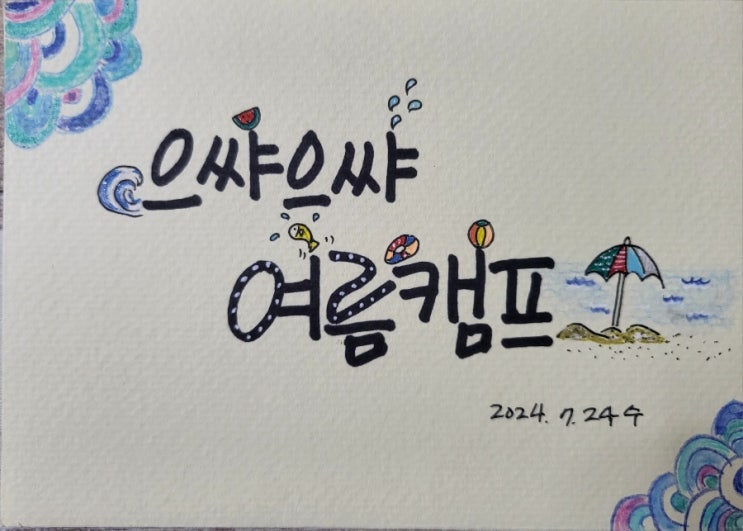 으쌰으쌰
여름캠프
2024. 7. 24 수